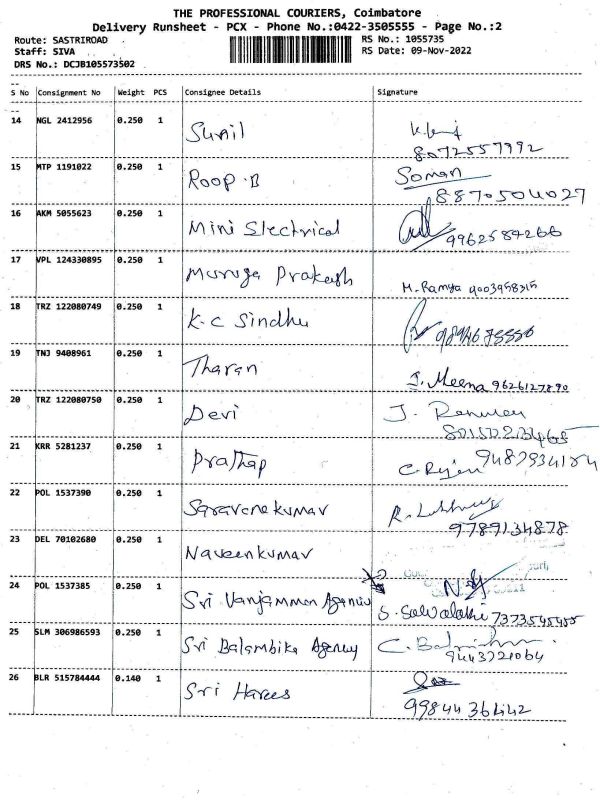 THE PROFESSIONAL COURIERS, Coimbatore
Delivery Runsheet - PCX - Phone No.:0422-3505555 - Page No.:2
Route: SASTRIROAD RS No.: 1055735
Staff: SIVA RS Date: 09-Nov-2022
DRS No.: DCJB105573502
S No Consignment No Weight PCS Consignee Details Signature
14 NGL 2412956 0.250 1 Sunil
8072557992
15 MTP 1191022 0.250 1 Roop.B Soman
8870504027
16 AKM 5055623 0.250 1 Mini Slectrical 9962587266
17 VPL 124330895 0.250 1 Muruga Prakash M. Ramya 9003958315
18 TRZ 122080749 0.250 1 K.C Sindhu
19 TNJ 9408961 0.250 1 Tharan J. Meena 9626127890
20 TRZ 122080750 0.250 1 Devi J.
21 KRR 5281237 0.250 1 Prathap C.
22 POL 1537390 0.250 1 Saravanakumar R.
9789134878
23 DEL 70102680 0.250 1 Naveenkumar
24 POL 1537385 0.250 1 Sri Vanjamman Agencies S. 7373545455
25 SLM 306986593 0.250 1 Sri Balambika Agency C.
9443721064
26 BLR 515784444 0.140 1 Sri Harees
9984436442